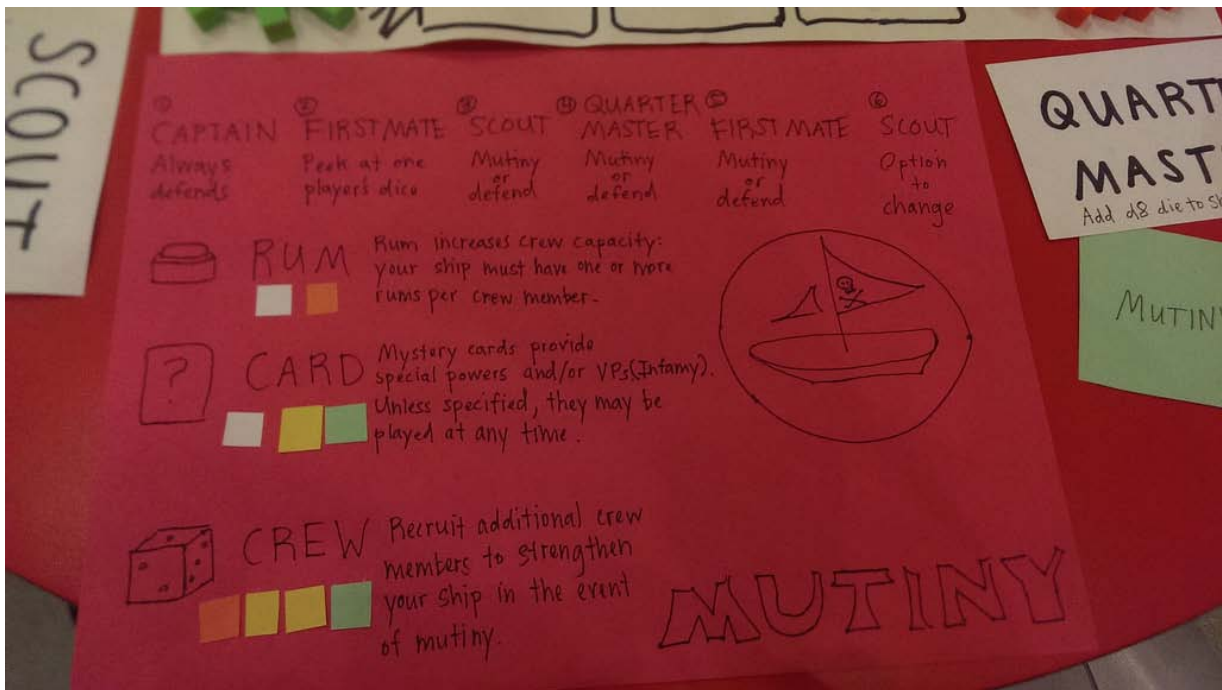 SCOUT
① ② ③ ④ ⑤ ⑥
CAPTAIN
Always
defends
FIRST MATE
Peek at one
player's dice
SCOUT
Mutiny
or
defend
QUARTER
MASTER
Mutiny
or
defend
FIRST MATE
Mutiny
or
defend
SCOUT
Option
to
change
RUM
Rum increases crew capacity:
your ship must have one or more
rums per crew member.
?
CARD
Mystery cards provide
special powers and/or VPs (Infamy).
Unless specified, they may be
played at any time.
CREW
Recruit additional crew
members to strengthen
your ship in the event
of mutiny.
MUTINY
QUART
MAST
Add d8 die to
MUTIN